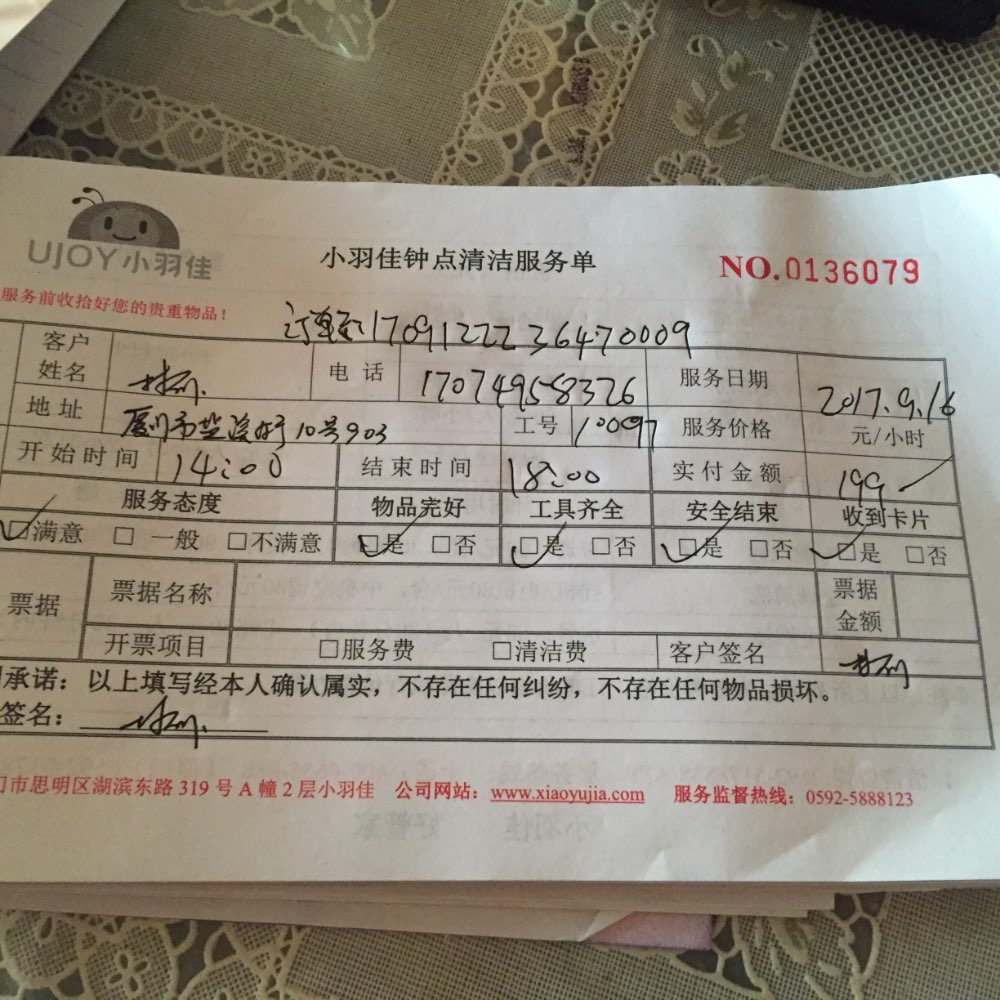 UJOY小羽佳
小羽佳钟点清洁服务单
NO.0136079
服务前收拾好您的贵重物品!
订单号:1709122236470009
客户姓名 电话 17074958326 服务日期 2017.9.16
地址 厦门市 10号903 工号 10097 服务价格 元/小时
开始时间 14:00 结束时间 18:00 实付金额 199
服务态度 物品完好 工具齐全 安全结束 收到卡片
☑满意 □一般 □不满意 ☑是 □否 ☑是 □否 ☑是 □否 ☑是 □否
票据 票据名称 票据金额
开票项目 □服务费 □清洁费 客户签名
承诺:以上填写经本人确认属实,不存在任何纠纷,不存在任何物品损坏。
签名:
门市思明区湖滨东路 319 号 A 幢 2 层小羽佳 公司网站:www.xiaoyujia.com 服务监督热线:0592-5888123